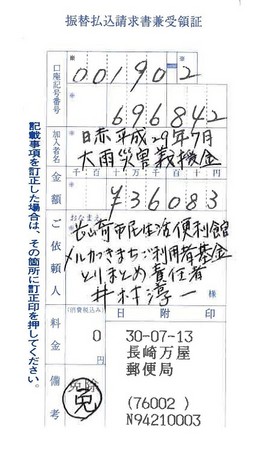 振替払込請求書兼受領証
口座記号番号
00190 2
696842
加入者名
日赤平成29年7月
大雨災害義援金
金額
千 百 十 万 千 百 十 円
¥36083
ご依頼人
おなまえ
長崎市民生活便利館
メルカつきまちご利用者基金
とりまとめ責任者
井村淳一 様
料金
(消費税込み)
0 円
日附印
30-07-13
長崎万屋
郵便局
(76002)
N94210003
備考
免除
免
記載事項を訂正した場合は、その箇所に訂正印を押してください。